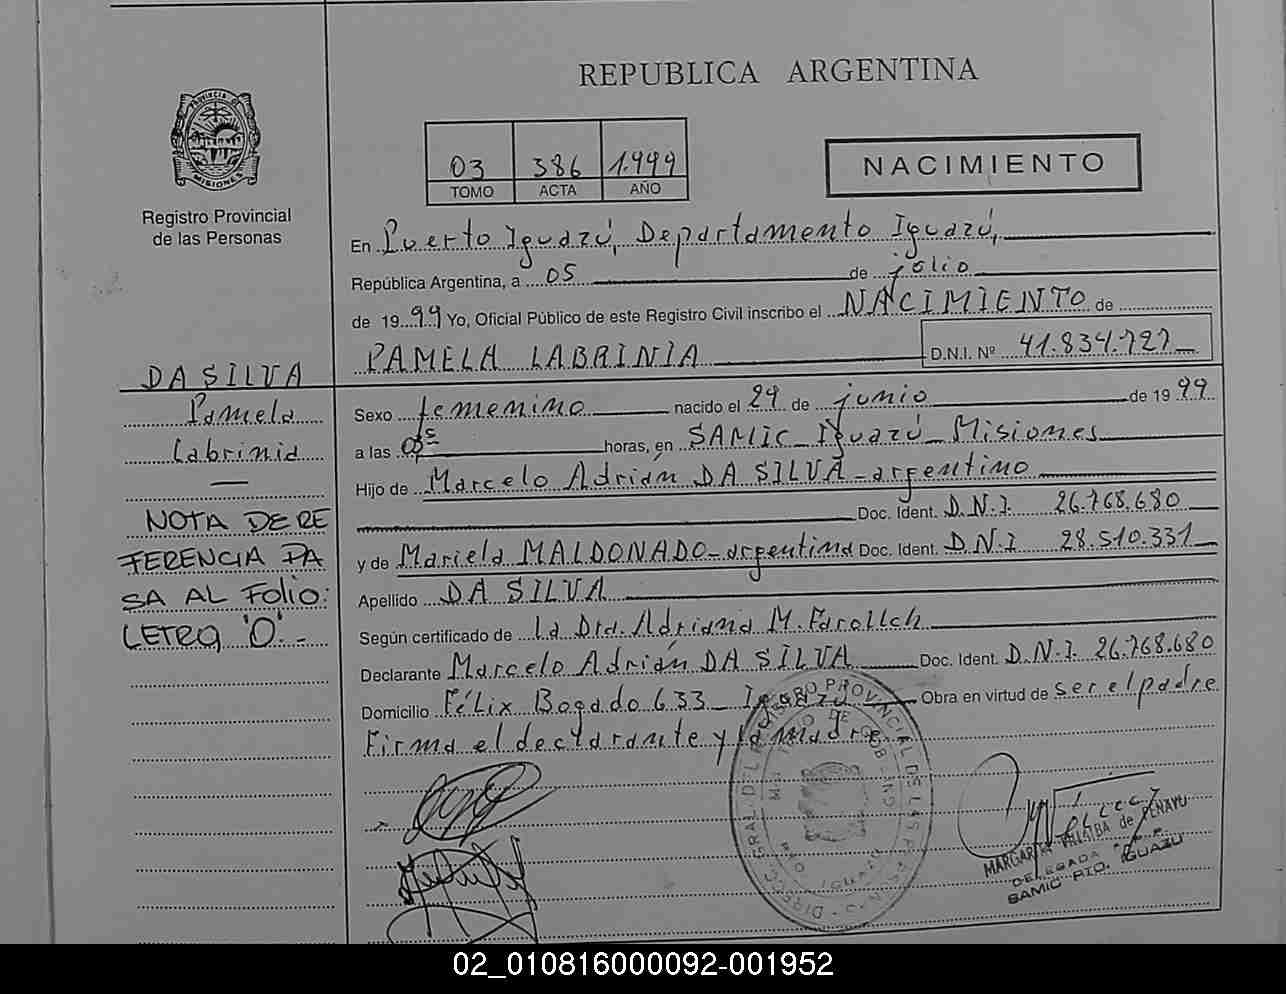 REPUBLICA ARGENTINA
PROVINCIA DE
MISIONES
Registro Provincial
de las Personas
03 386 1.999
TOMO ACTA AÑO
NACIMIENTO
En Puerto Iguazú, Departamento Iguazú,
República Argentina, a 05 de julio
de 1999 Yo, Oficial Público de este Registro Civil inscribo el NACIMIENTO de
PAMELA LABRINIA D.N.I. Nº 41.834.727
DA SILVA
Pamela
Labrinia
NOTA DE RE
FERENCIA PA
SA AL FOLIO:
LETRA, 'O'.-
Sexo femenino nacido el 29 de junio de 1999
a las horas, en SAMIC Iguazú Misiones
Hijo de Marcelo Adrián DA SILVA - argentino
Doc. Ident. D.N.I. 26.768.680
y de Mariela MALDONADO - argentina Doc. Ident. D.N.I 28.510.331
Apellido DA SILVA
Según certificado de la Dra. Adriana M.
Declarante Marcelo Adrián DA SILVA Doc. Ident. D.N.I. 26.768.680
Domicilio Félix Bogado 633 Iguazú Obra en virtud de ser el padre
Firma el declarante y la madre
MARGARITA VILLALBA de PENAYO
DELEGADA
SAMIC PTO. IGUAZU
02_010816000092-001952